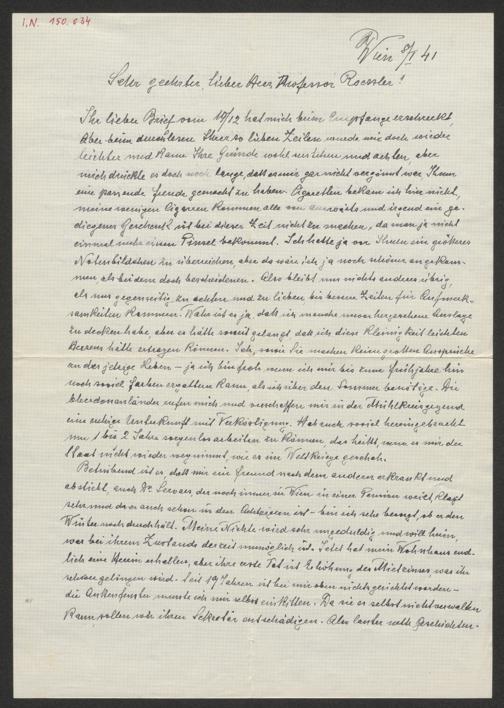 I.N. 150.634
Wien 8/I 41
Sehr geehrter, lieber Herr Professor Roessler!
Ihr lieber Brief vom 19/12 hat mich beim Empfange erschreckt.
Aber beim durchlesen Ihrer so lieben Zeilen wurde mir doch wieder
leichter und kann Ihre Gründe wohl verstehen und achten, aber
mich drückte es doch noch lange, daß es mir gar nicht vergönnt war Ihnen
eine passende Freude gemacht zu haben. Cigaretten bekam ich hier nicht,
meine wenigen Cigarren kommen alle von auswärts und irgend ein ge-
diegenes Geschenk ist bei dieser Zeit nicht zu machen, da man ja nicht
einmal mehr einen Pinsel bekommt. Ich hatte ja vor Ihnen ein größeres
zu überreichen, aber da wäre ich ja noch schöner angekom-
men als bei dem doch bescheidenen. Also bleibt uns nichts anderes übrig,
als uns gegenseitig zu achten und zu lieben bis bessere Zeiten für Aufmerk-
samkeiten kommen. Wahr ist es ja, daß ich manche unvorhergesehene Auslage
zu decken habe, aber es hätte soweit gelangt daß ich diese Kleinigkeit leichten
Herzens hätte ertragen können. Ich, wie Sie machen keine großen Ansprüche
an das jetzige Leben – ja ich bin froh, wenn ich mir bis zum Frühjahre hin
noch soviel Farben ergattern kann, als ich über den Sommer benötige. Die
rufen mich und verschaffen mir in der Mühlkreisgegend
eine ruhige Unterkunft mit Verköstigung. Hab auch soviel hereingebracht
um 1 bis 2 Jahre sorgenlos arbeiten zu können, das heißt, wenn es mir der
Staat nicht wieder wegnimmt, wie es im Weltkriege geschah.
Betrübend ist es, daß mir ein Freund nach dem anderen erkrankt und
abstirbt, auch Dr. Servaes, der noch immer in Wien in einer Pension weilt, klagt
sehr und da er auch schon in den Achtzigern ist – bin ich sehr besorgt, ob er den
Winter noch durchhält. Meine Nichte wird sehr ungeduldig und will heim,
was bei ihrem Zustande derzeit unmöglich ist. Jetzt hat mein Wohnhaus end-
lich eine Herrin erhalten, aber ihre erste Tat ist Erhöhung des Mietzinses, was ihr
schwer gelingen wird. Seit 19 Jahren ist bei mir oben nichts gerichtet worden –
die mußte ich mir selbst einkitten. Da sie es selbst nicht verwalten
kann, sollen wir ihren Sekretär entschädigen. Also lauter nette Geschichten.